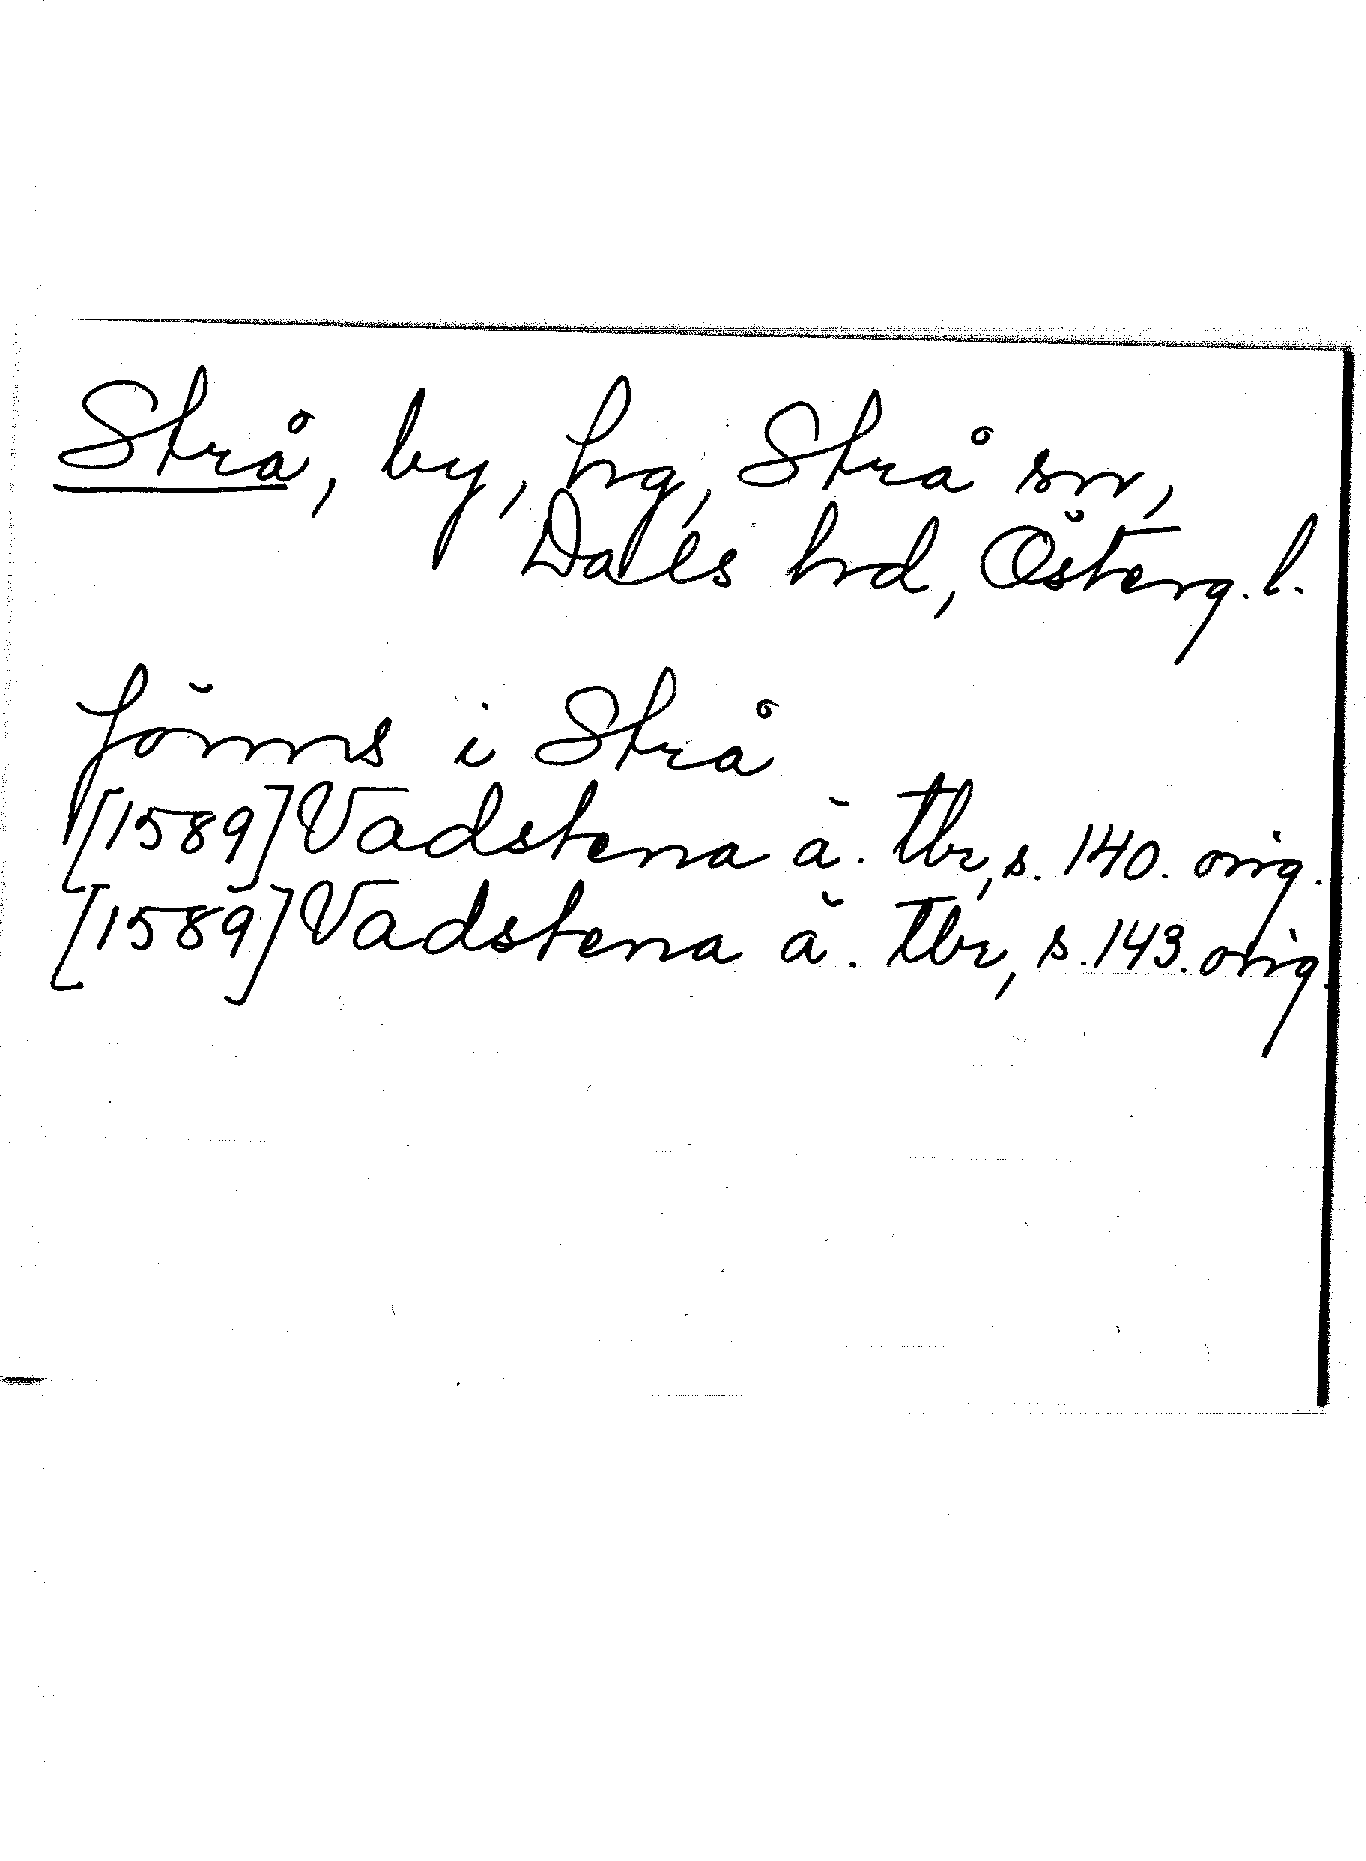 Strå, by, hg, Strå sn,
Dals hd, Österg. l.
Jönns i Strå
[1589] Vadstena ä. tbr, s. 140. orig.
[1589] Vadstena ä. tbr, s. 143. orig.